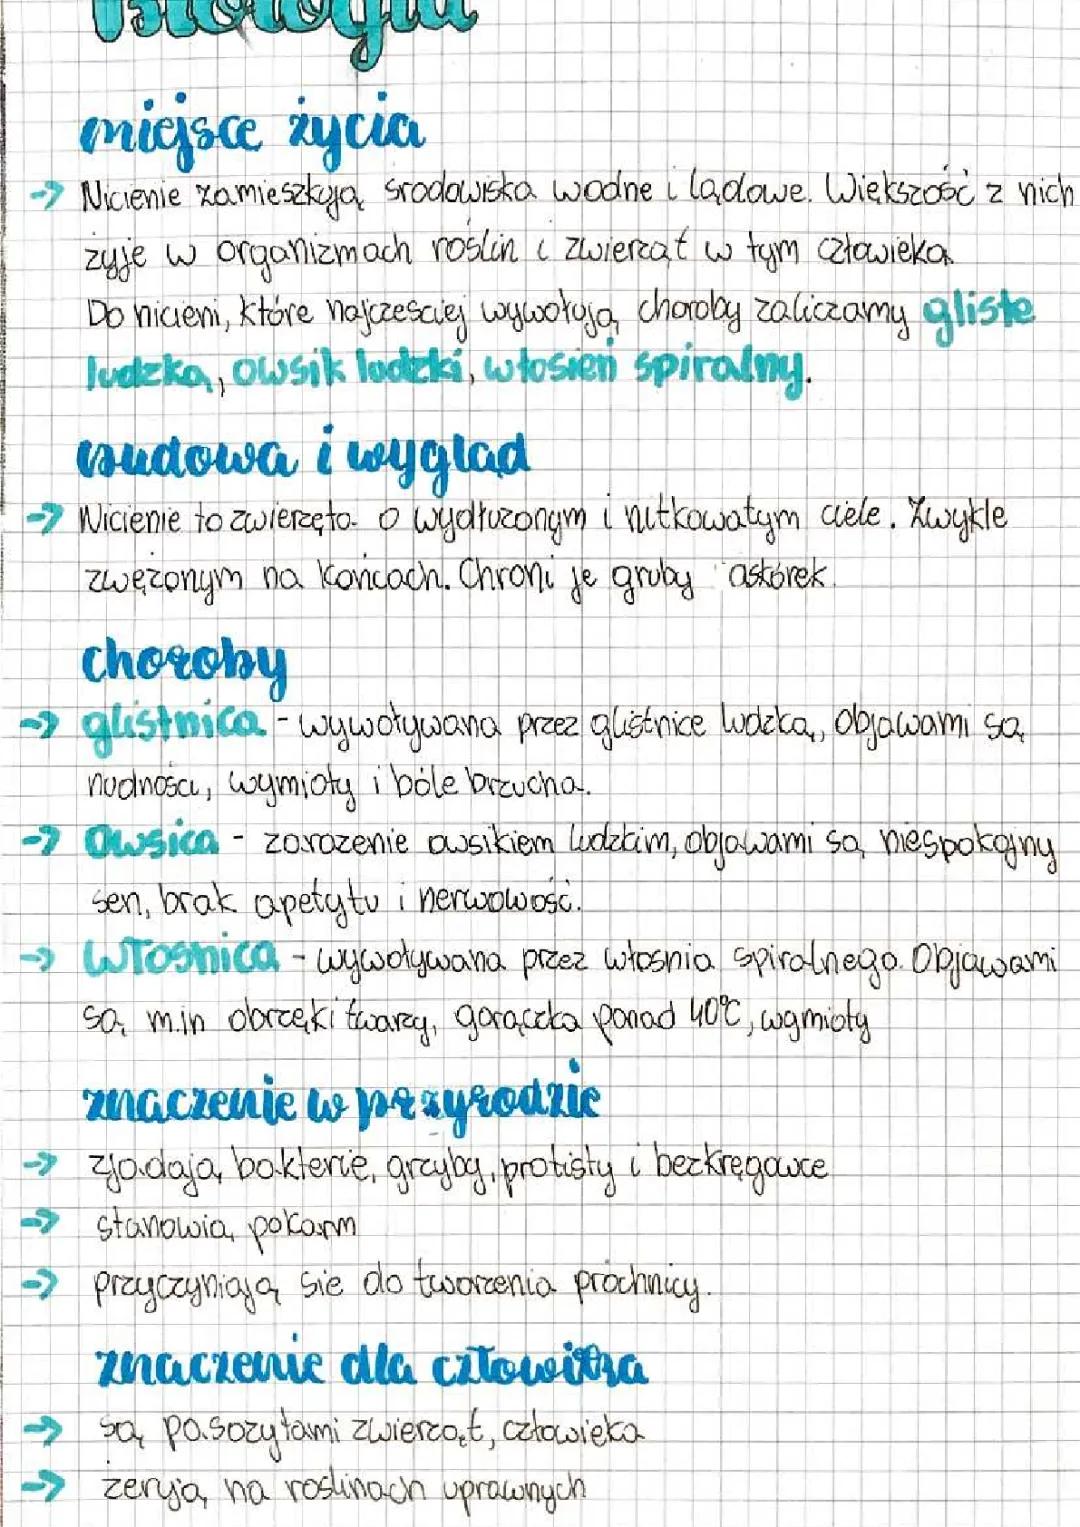 Biologia
miejsce życia
→ Nicienie zamieszkują środowiska wodne i lądowe. Większość z nich
żyje w organizmach roślin i zwierząt w tym człowieka
Do nicieni, które najczęsciej wywołują choroby zaliczamy gliste
ludzką, owsik ludzki, włosień spiralny.
budowa i wygląd
→ Nicienie to zwierzęta o wydłużonym i nitkowatym ciele. Zwykle
zwężonym na końcach. Chroni je gruby oskórek.
choroby
→ glistnica - wywoływana przez glistnice ludzką, Objawami są
nudności, wymioty i bóle brzucha.
→ Owsica - zarażenie owsikiem ludzkim, objawami są niespokojny
sen, brak apetytu i nerwowość.
→ Włosnica - wywoływana przez włosnia spiralnego. Objawami
są m.in obrzęki twarzy, gorączka ponad 40°C, wymioty
znaczenie w przyrodzie
→ zjadają bakterie, grzyby, protisty i bezkręgowce
→ stanowią pokarm
→ przyczyniają sie do tworzenia próchnicy.
znaczenie dla człowieka
→ są pasożytami zwierząt, człowieka
→ żerują na roślinach uprawnych